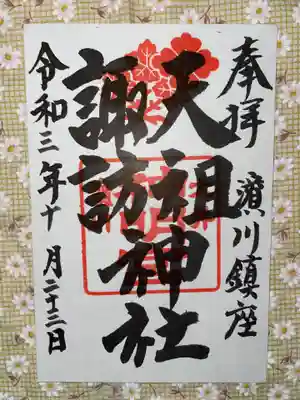 奉拝
濱川鎮座
天祖神社
諏訪
令和三年十月二十三日